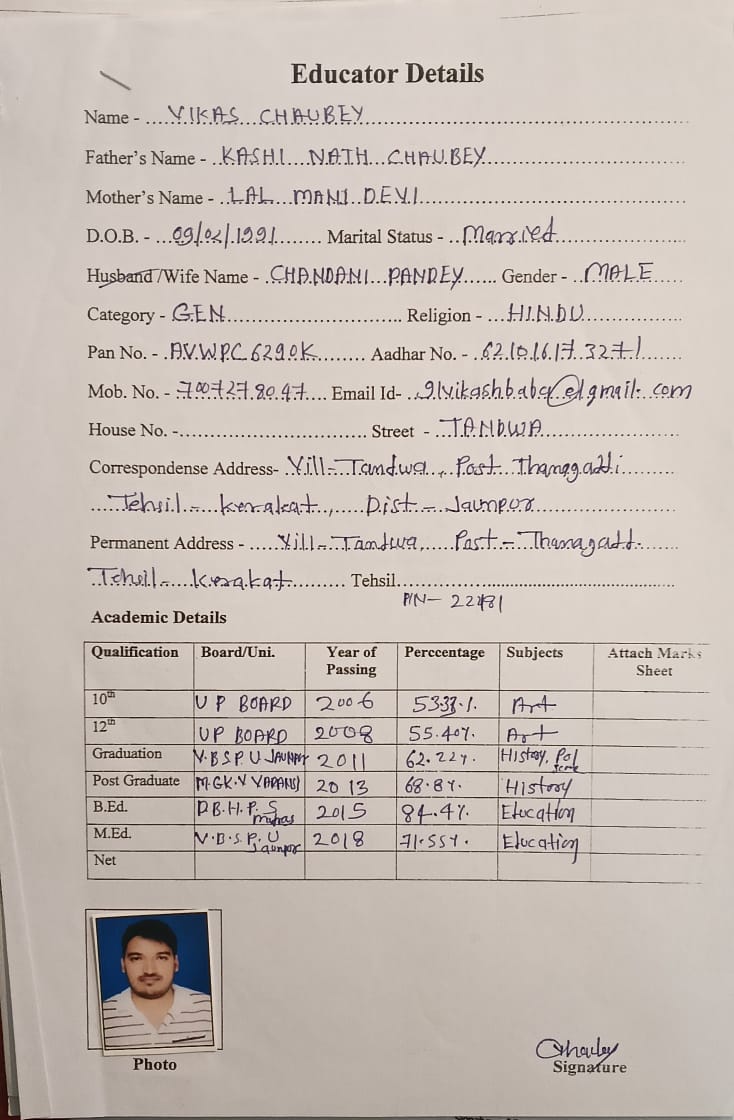 Educator Details
Name - VIKAS CHAUBEY
Father's Name - KASHI NATH CHAUBEY
Mother's Name - LAL MANI DEVI
D.O.B. - 09/02/1991 Marital Status - Married
Husband/Wife Name - CHANDANI PANDEY Gender - MALE
Category - GEN Religion - HINDU
Pan No. - AVWPC6290K Aadhar No. -
Mob. No. - 7007278047 Email Id- 91vikashbaba@gmail.com
House No. - Street - TANDWA
Correspondense Address- Vill- Tandwa, Post Thanagaddi
Tehsil- Kerakat, Dist- Jaunpur
Permanent Address - Vill- Tandwa, Post- Thanagaddi
Tehsil- Kerakat Tehsil
PIN-
Academic Details
Qualification Board/Uni. Year of Passing Perccentage Subjects Attach Marks Sheet
10th U P BOARD 2006 Art
12th UP BOARD 2008 55.40%. Art
Graduation V.B.S.P.U JAUNPUR 2011 62.22%. History, Pol Science
Post Graduate M.G.K.V VARANSI 2013 68.8%. History
B.Ed. D.B.H.P.S 2015 84.4%. Education
M.Ed. V.B.S.P.U Jaunpur 2018 71.55%. Education
Net
Photo
Signature